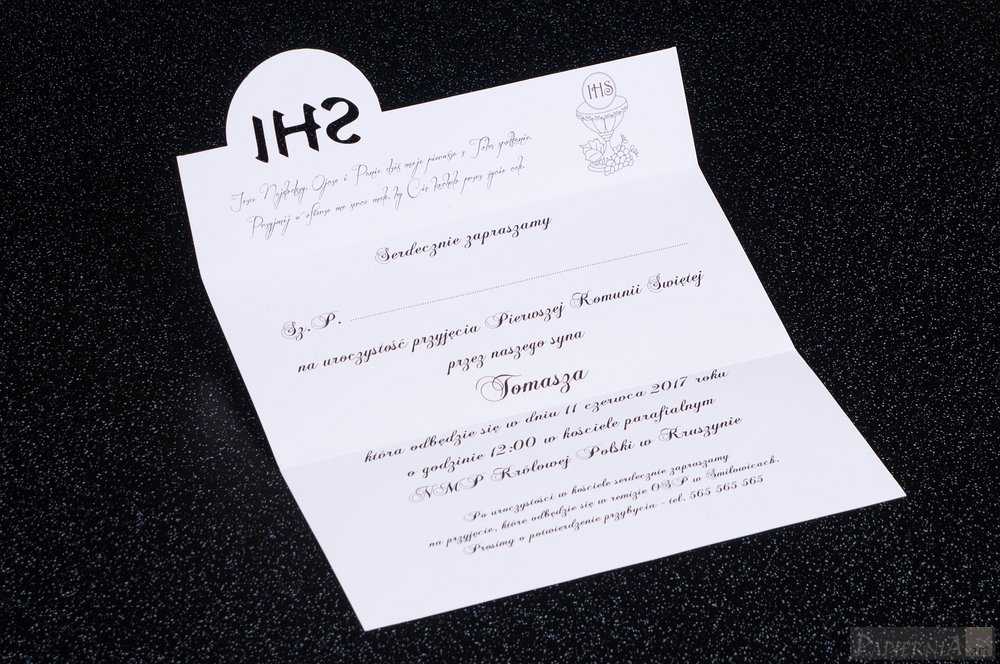 IHS
IHS
Jezu Najsłodszy, Ojcze i Panie dziś moje pierwsze z Tobą spotkanie.
Przyjmij w ofierze me serce małe, by Cię kochało przez życie całe.
Serdecznie zapraszamy
Sz. P. ................................................
na uroczystość przyjęcia Pierwszej Komunii Świętej
przez naszego syna
Tomasza
która odbędzie się w dniu 11 czerwca 2017 roku
o godzinie 12:00 w kościele parafialnym
NMP Królowej Polski w Kruszynie
Po uroczystości w kościele serdecznie zapraszamy
na przyjęcie, które odbędzie się w remizie OSP w Smiłowicach.
Prosimy o potwierdzenie przybycia - tel. 565 565 565
PAPIERNIA